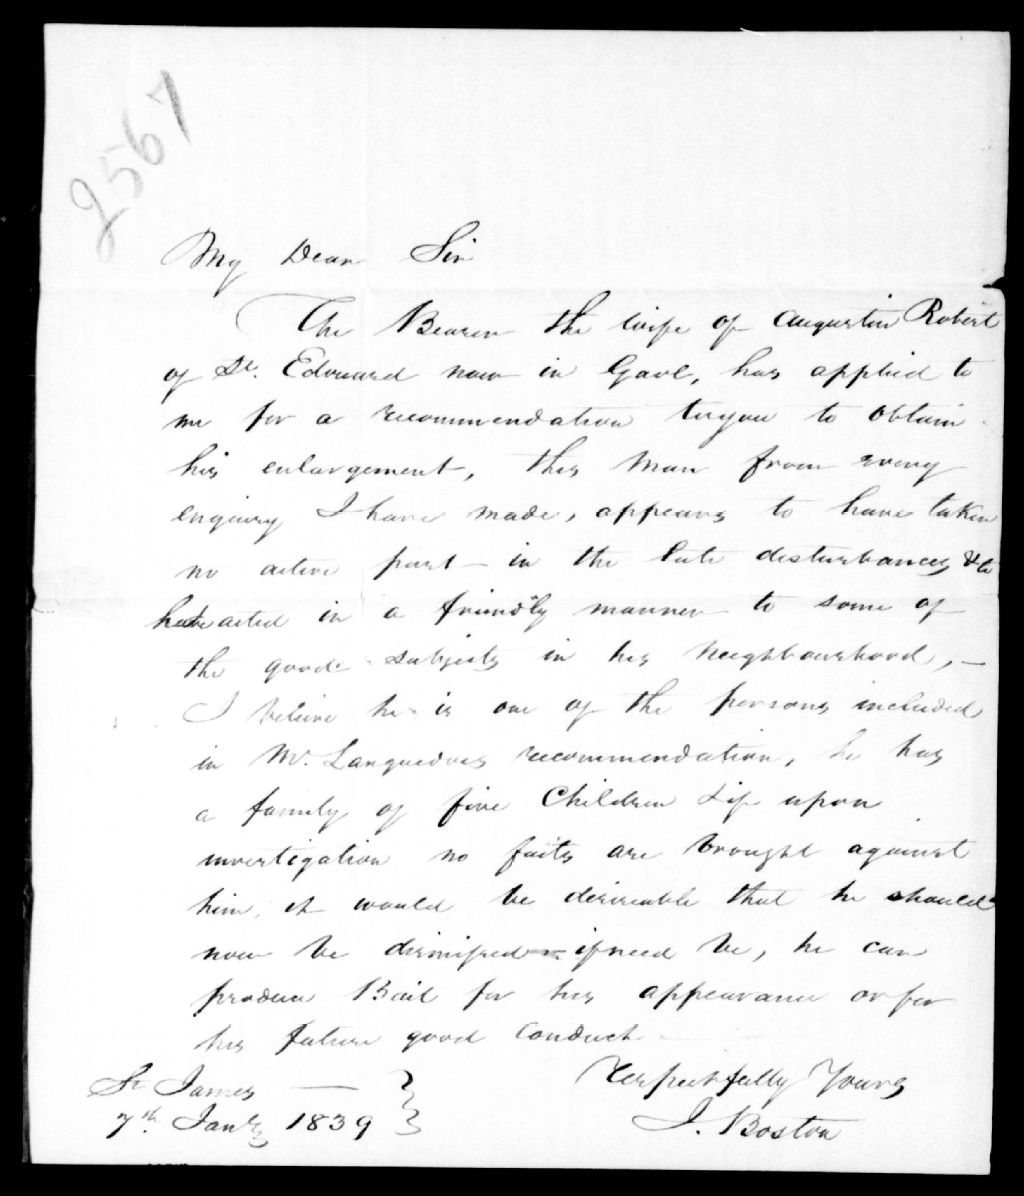 2567
My Dear Sir
The Bearer the wife of Augustin Robert
of St. Edouard now in Gaol, has applied to
me for a recommendation to you to obtain
his enlargement, this man from every
enquiry I have made, appears to have taken
no active part in the late disturbances & to
have acted in a friendly manner to some of
the good subjects in his neighbourhood, —
I believe he is one of the persons included
in Mr. Languedocs recommendation, he has
a family of five Children & if upon
investigation no facts are brought against
him, it would be desireable that he should
now be dismissed — if need be, he can
produce Bail for his appearance or for
his future good Conduct —
Respectfully Yours
J. Boston
St James —
7th Jany 1839